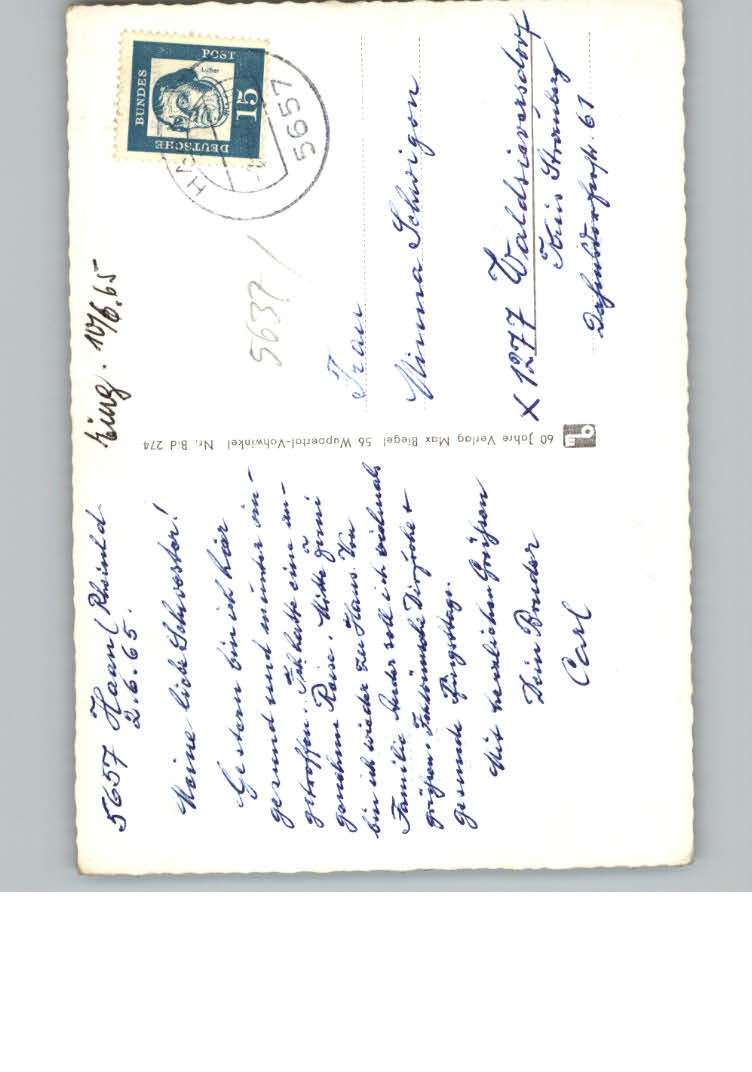 5657 Haan/Rheinld.
2.6.65.
Meine liebe Schwester!
Gestern bin ich hier
gesund und munter ein-
getroffen. Ich hatte eine an-
genehme Reise. Mitte Juni
bin ich wieder zu Haus. Von
Familie soll ich vielmals
grüßen. Dir
gesunde Pfingsttage.
Mit herzlichen Grüßen
Dein Bruder
Carl
60 Jahre Verlag Max Biegel 56 Wuppertal-Vohwinkel Nr. Bid 274
Eing. 10/6.65
DEUTSCHE
BUNDES
POST
Luther
15
HA
5657
5637/
Frau
Minna Schwigon
X 1277 Waldsieversdorf
Kreis Strausberg
Dahmsdorferstr. 61